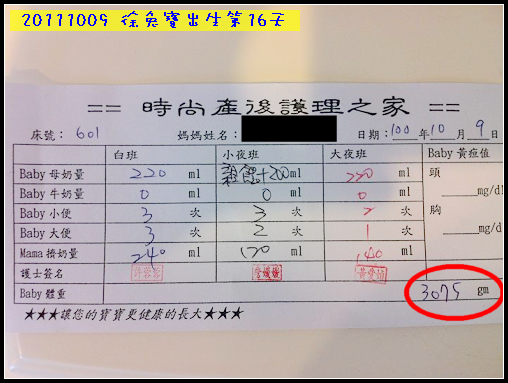 20111009 徐兔寶出生第16天
== 時尚產後護理之家 ==
床號： 601 媽媽姓名： 日期：100年10月9日
白班 小夜班 大夜班 Baby 黃疸值
Baby 母奶量 220 ml 親餵+200ml 220 ml 頭
Baby 牛奶量 0 ml 0 ml 0 ml mg/dl
Baby 小便 3 次 3 次 2 次 胸
Baby 大便 3 次 2 次 1 次 mg/dl
Mama 擠奶量 240 ml 170 ml 140 ml
護士簽名
Baby 體重 3075 gm
★★★讓您的寶寶更健康的長大★★★